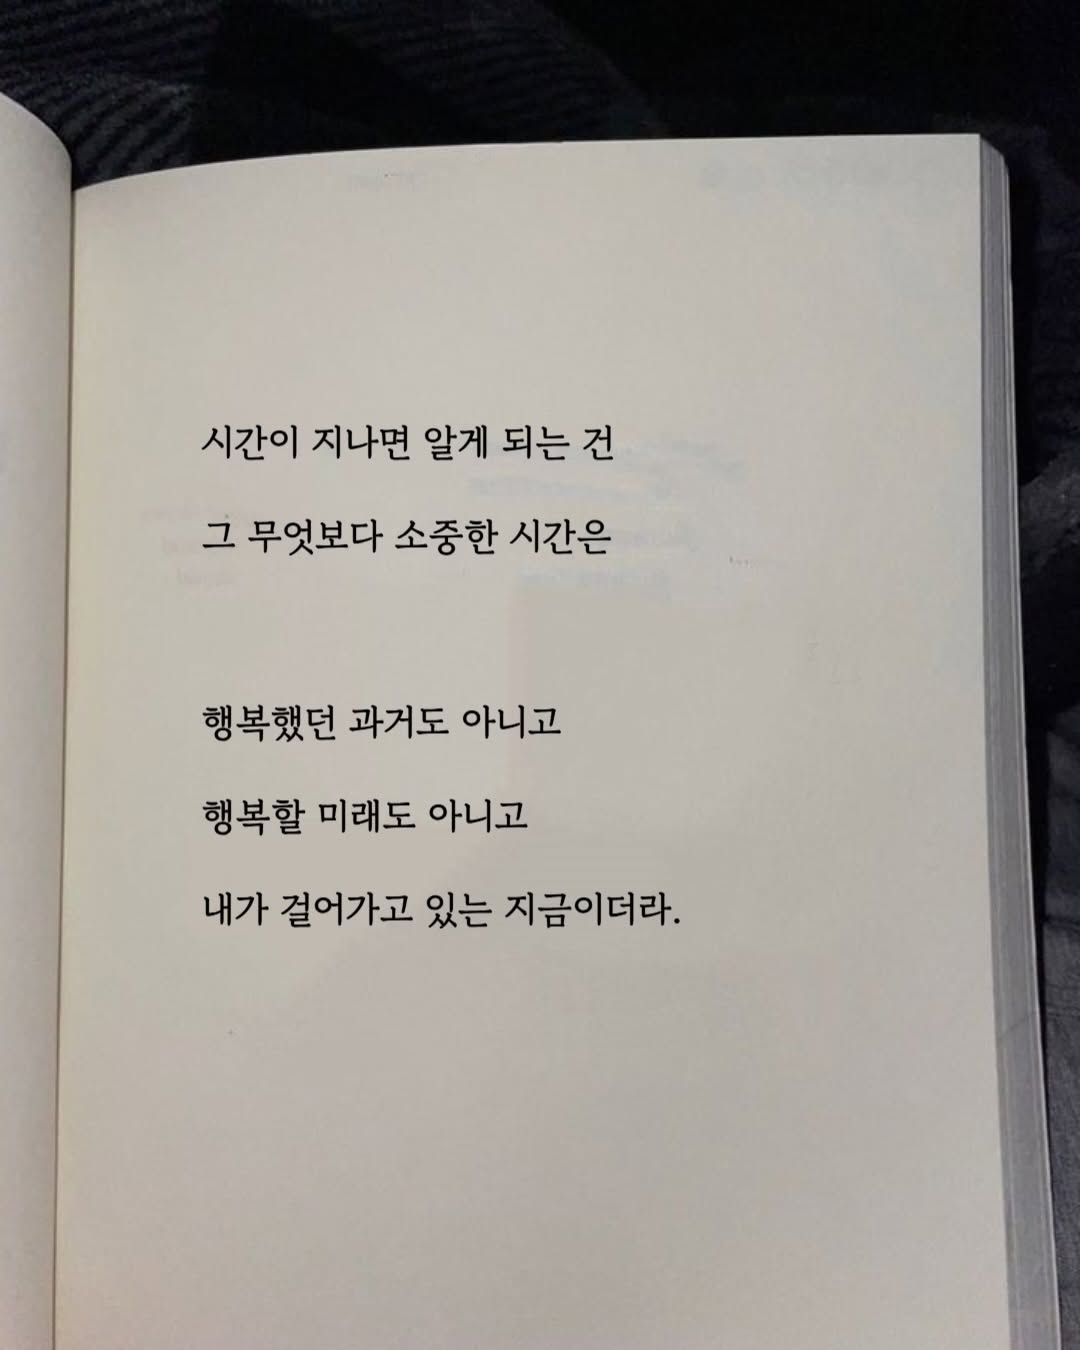 시간이 지나면 알게 되는 건
그 무엇보다 소중한 시간은
행복했던 과거도 아니고
행복할 미래도 아니고
내가 걸어가고 있는 지금이더라.